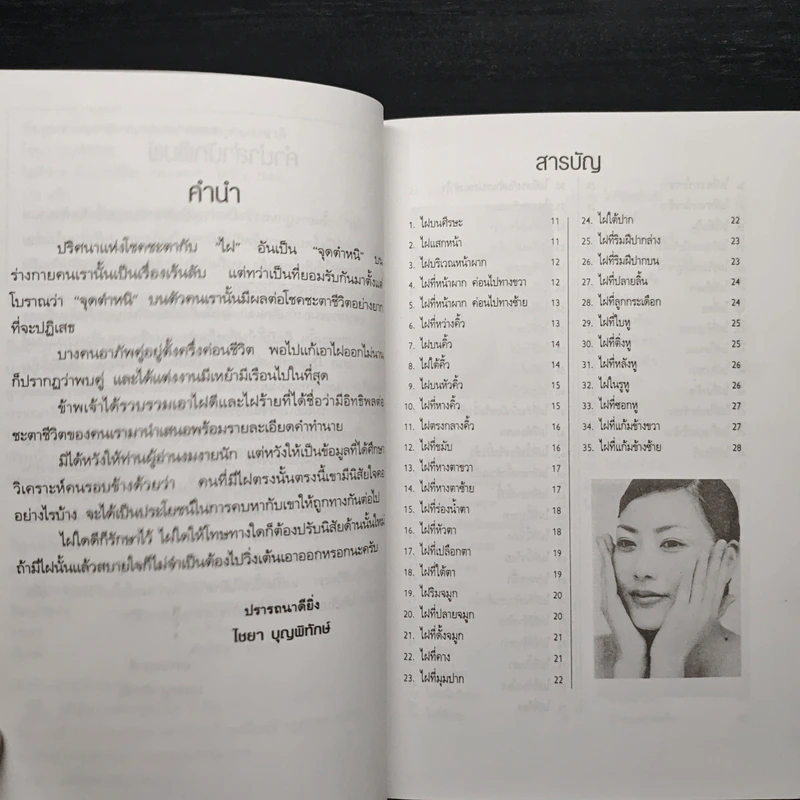 คำนำ
ปริศนาแห่งโชคชะตากับ "ไฝ" อันเป็น "จุดตำหนิ" บน
ร่างกายคนเรานั้นเป็นเรื่องเร้นลับ แต่ทว่าเป็นที่ยอมรับกันมาตั้งแต่
โบราณว่า "จุดตำหนิ" บนตัวคนเรานั้นมีผลต่อโชคชะตาชีวิตอย่างยาก
ที่จะปฏิเสธ
บางคนอาภัพคู่อยู่ตั้งครึ่งค่อนชีวิต พอไปแก้เอาไฝออกไม่นาน
ก็ปรากฏว่าพบคู่ และได้แต่งงานมีเหย้ามีเรือนไปในที่สุด
ข้าพเจ้าได้รวบรวมเอาไฝดีและไฝร้ายที่ได้ชื่อว่ามีอิทธิพลต่อ
ชะตาชีวิตของคนเรามานำเสนอพร้อมรายละเอียดคำทำนาย
มิได้หวังให้ท่านผู้อ่านงมงายนัก แต่หวังให้เป็นข้อมูลที่ได้ศึกษา
วิเคราะห์คนรอบข้างด้วยว่า คนที่มีไฝตรงนั้นตรงนี้เขามีนิสัยใจคอ
อย่างไรบ้าง จะได้เป็นประโยชน์ในการคบหากับเขาให้ถูกทางกันต่อไป
ไฝใดดีก็รักษาไว้ ไฝใดให้โทษทางใดก็ต้องปรับนิสัยด้านนั้นใหม่
ถ้ามีไฝนั้นแล้วสบายใจก็ไม่จำเป็นต้องไปวิ่งเต้นเอาออกหรอกนะครับ
ปรารถนาดียิ่ง
ไชยา บุญพิทักษ์
สารบัญ
1. ไฝบนศีรษะ 11
2. ไฝแสกหน้า 11
3. ไฝบริเวณหน้าผาก 12
4. ไฝที่หน้าผาก ค่อนไปทางขวา 12
5. ไฝที่หน้าผาก ค่อนไปทางซ้าย 13
6. ไฝที่หว่างคิ้ว 13
7. ไฝบนคิ้ว 14
8. ไฝใต้คิ้ว 14
9. ไฝบนหัวคิ้ว 15
10. ไฝที่หางคิ้ว 15
11. ไฝตรงกลางคิ้ว 16
12. ไฝที่ขมับ 16
13. ไฝที่หางตาขวา 17
14. ไฝที่หางตาซ้าย 17
15. ไฝที่ร่องน้ำตา 18
16. ไฝที่หัวตา 18
17. ไฝที่เปลือกตา 19
18. ไฝที่ใต้ตา 19
19. ไฝริมจมูก 20
20. ไฝที่ปลายจมูก 20
21. ไฝที่ดั้งจมูก 21
22. ไฝที่คาง 21
23. ไฝที่มุมปาก 22
24. ไฝใต้ปาก 22
25. ไฝที่ริมฝีปากล่าง 23
26. ไฝที่ริมฝีปากบน 23
27. ไฝที่ปลายลิ้น 24
28. ไฝที่ลูกกระเดือก 24
29. ไฝที่ใบหู 25
30. ไฝที่ติ่งหู 25
31. ไฝที่หลังหู 26
32. ไฝในรูหู 26
33. ไฝที่ซอกหู 27
34. ไฝที่แก้มข้างขวา 27
35. ไฝที่แก้มข้างซ้าย 28